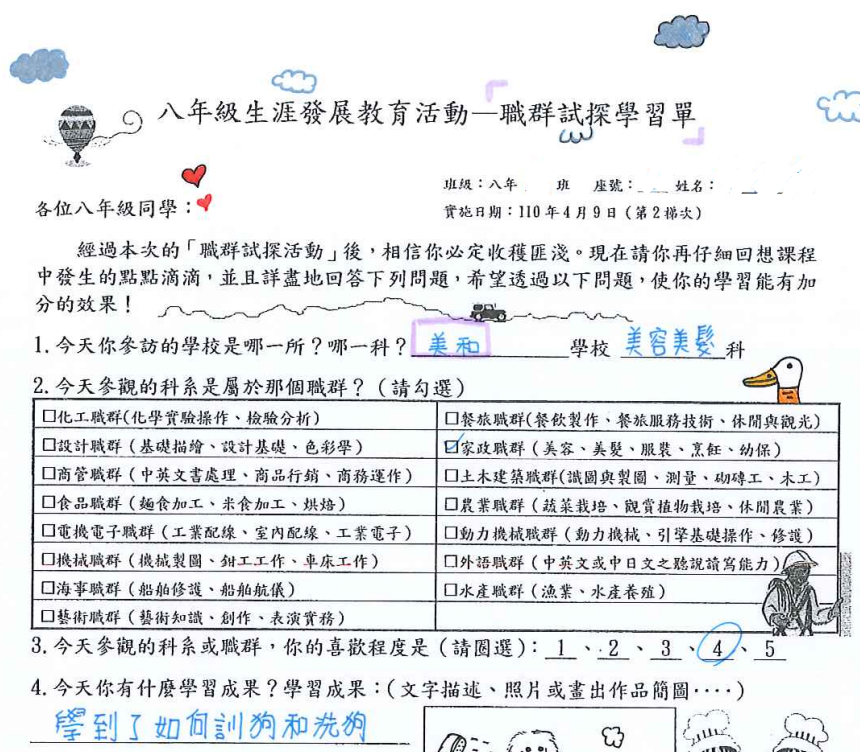 八年級生涯發展教育活動—職群試探學習單
班級：八年 班 座號： 姓名：
各位八年級同學：
實施日期：110年4月9日（第2梯次）
經過本次的「職群試探活動」後，相信你必定收穫匪淺。現在請你再仔細回想課程
中發生的點點滴滴，並且詳盡地回答下列問題，希望透過以下問題，使你的學習能有加
分的效果！
1.今天你參訪的學校是哪一所？哪一科？美和 學校 美容美髮科
2.今天參觀的科系是屬於那個職群？（請勾選）
□化工職群(化學實驗操作、檢驗分析) □餐旅職群(餐飲製作、餐旅服務技術、休閒與觀光)
□設計職群（基礎描繪、設計基礎、色彩學） ☑家政職群（美容、美髮、服裝、烹飪、幼保）
□商管職群（中英文書處理、商品行銷、商務運作） □土木建築職群(識圖與製圖、測量、砌磚工、木工)
□食品職群（麵食加工、米食加工、烘焙） □農業職群（蔬菜栽培、觀賞植物栽培、休閒農業）
□電機電子職群（工業配線、室內配線、工業電子） □動力機械職群（動力機械、引擎基礎操作、修護）
□機械職群（機械製圖、鉗工工作、車床工作） □外語職群（中英文或中日文之聽說讀寫能力）
□海事職群（船舶修護、船舶航儀） □水產職群（漁業、水產養殖）
□藝術職群（藝術知識、創作、表演實務）
3.今天參觀的科系或職群，你的喜歡程度是（請圈選）：1、2、3、4、5
4.今天你有什麼學習成果？學習成果：(文字描述、照片或畫出作品簡圖‥‥)
學到了如何訓狗和洗狗